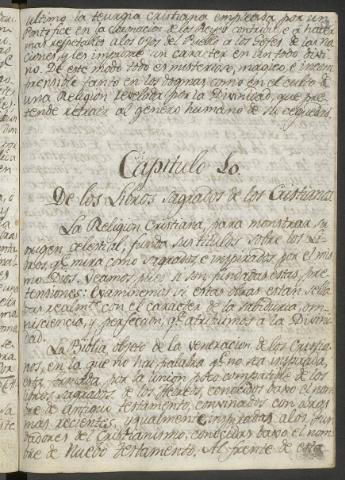 ultimo la teurgia Cristiana empleada por un
Pontifice en la Coronacion de los Reyes contribuie a hacer
mas respetables a los Ojos del Pueblo a los Gefes de las Na-
ciones, y les imprime un caracter en un todo divi-
no. De este modo todo es misterioso, magico, e incom-
prensible tanto en los dogmas como en el culto de
una Religion revelada por la Divinidad, que pre-
tende retraer al genero humano de su ceguedad.
Capitulo Lo.
De los Libros Sagrados de los Cristianos
La Religion Cristiana, para monstrar su
origen celestial, funda sus titulos sobre los Li-
bros qe. mira como sagrados e inspirados por el mis-
mo Dios. Veamos pues si son fundadas estas pre-
tensiones: Examinemos si estas obras estan sella-
das realmte. con el caracter de la Sabiduria, om-
nisciencia, y perfeccion qe. atribuimos a la Divini-
dad.
La Biblia, objeto de la veneracion de los Cristia-
nos, en la que no hai palabra qe. no sea inspirada,
esta formada por la union poco compatible de los
Libros sagrados de los Hebreos, conocidos baxo el nom-
bre de antiguo testamento, convinados con obras
mas recientes, igualmente inspiradas a los fun-
dadores del Cristianismo, conocidas baxo el nom-
bre de Nuevo testamento. Al frente de esta